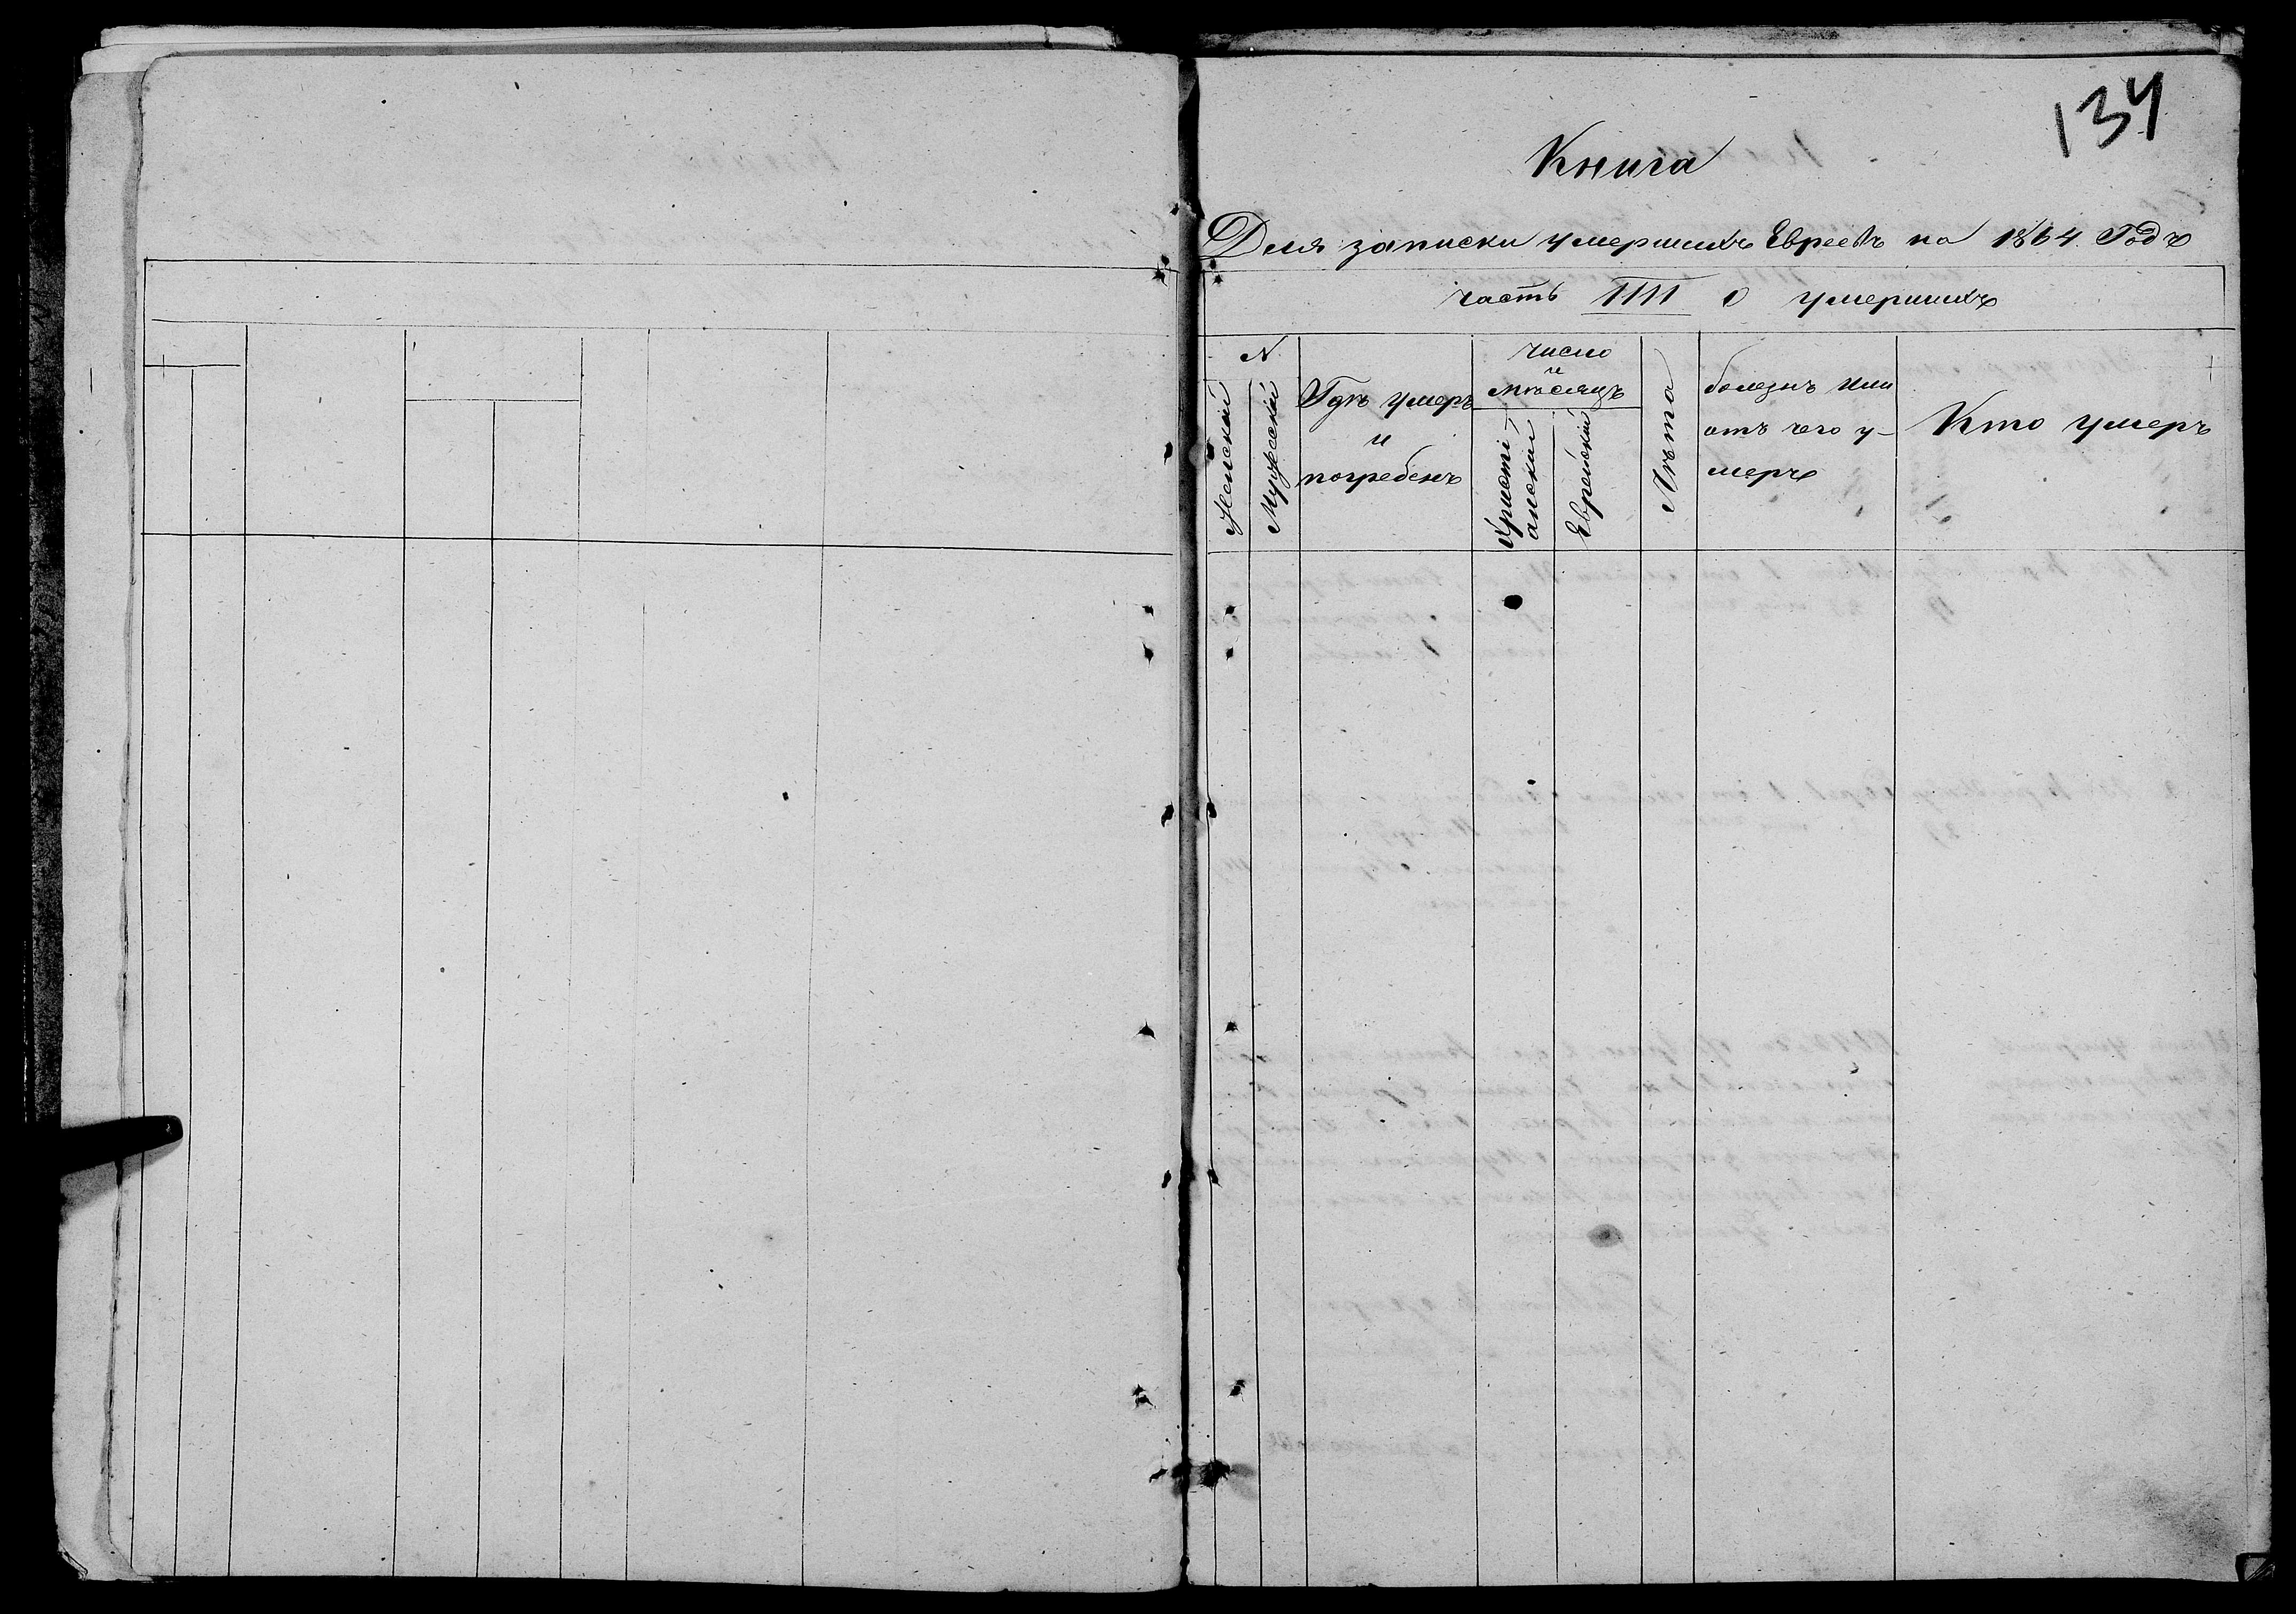 134
Книга
Для записки умершихъ Евреевъ на 1864 Годъ
часть IIII о умершихъ
N
Женскій
Мужескій
Гдѣ умеръ
и
погребенъ
число
и
мѣсяцъ
Христі-
анскій
Еврейскій
Лѣта
болезнъ или
отъ чего у-
меръ
Кто умеръ